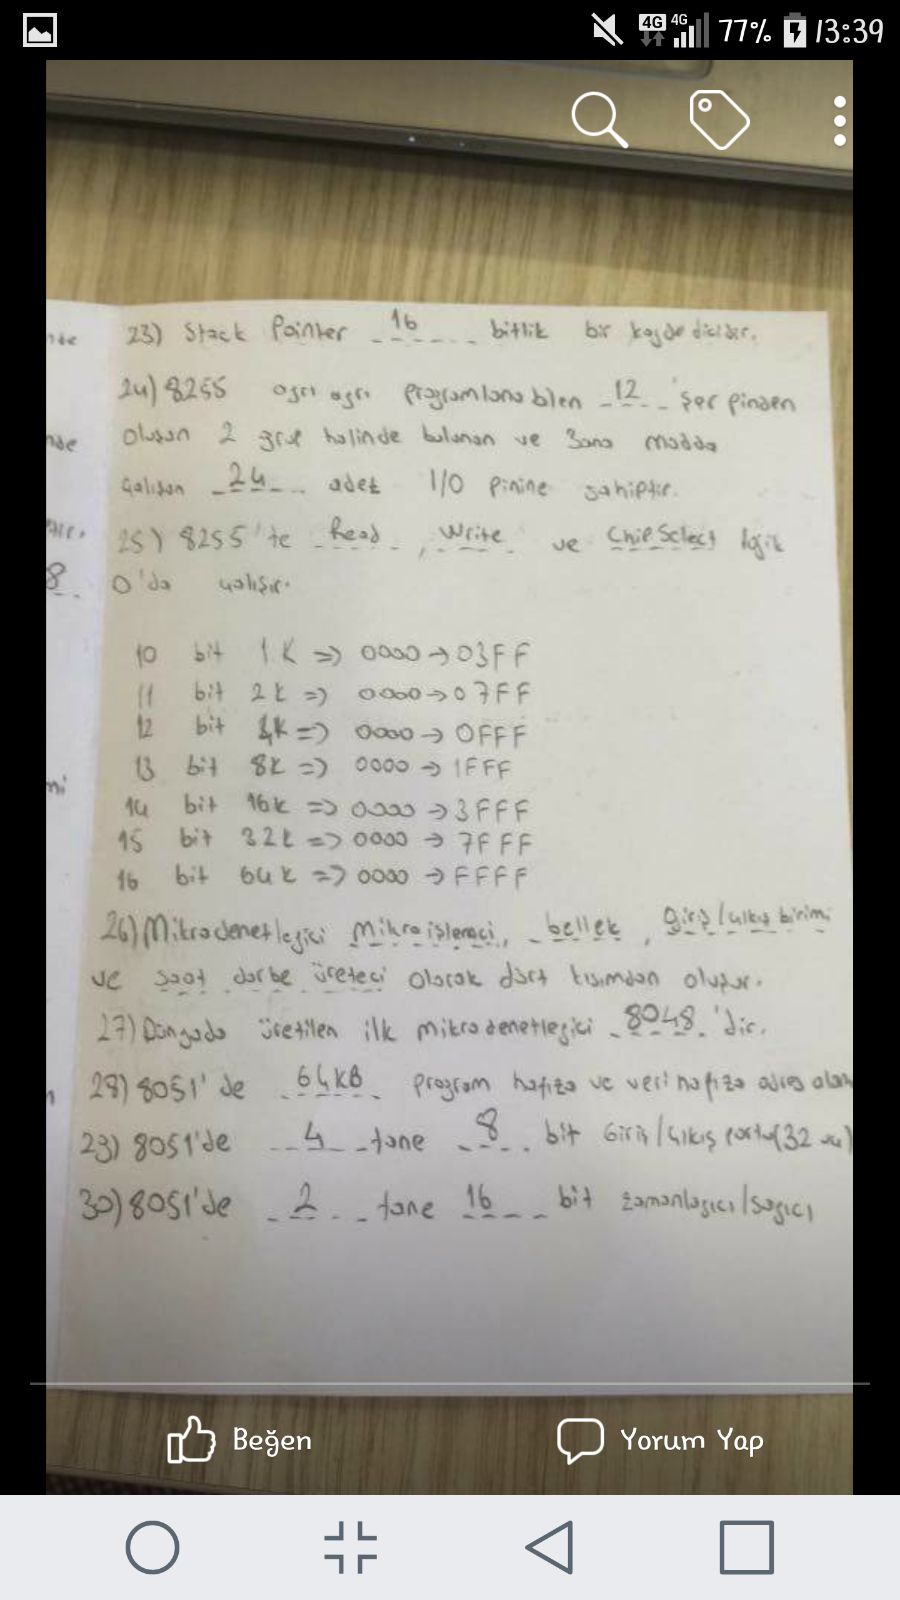 4G 4G 77% 13:39
nde
23) Stack Pointer 16 bitlik bir kaydedicidir.
24) 8255 ayrı ayrı programlanabilen 12 'şer pinden
nde
oluşan 2 grup halinde bulunan ve 3ana modda
çalışan 24 adet I/O pinine sahiptir.
25) 8255'te Read, Write ve ChipSelect lojik
8
0'da çalışır.
10 bit 1K => 0000 → 03FF
11 bit 2k => 0000 → 07FF
12 bit 4K => 0000 → 0FFF
13 bit 8k => 0000 → 1FFF
mi
14 bit 16k => 0000 → 3FFF
15 bit 32k => 0000 → 7FFF
16 bit 64k => 0000 → FFFF
26) Mikrodenetleyici Mikroişlemci, bellek, giriş/çıkış birimi
ve saat darbe üreteci olarak dört kısımdan oluşur.
27) Dünyada üretilen ilk mikrodenetleyici 8048 'dir.
28) 8051'de 64KB program hafıza ve veri hafıza adres alanı
29) 8051'de 4 tane 8 bit Giriş/Çıkış portu(32
30) 8051'de 2 tane 16 bit zamanlayıcı/sayıcı
Beğen Yorum Yap